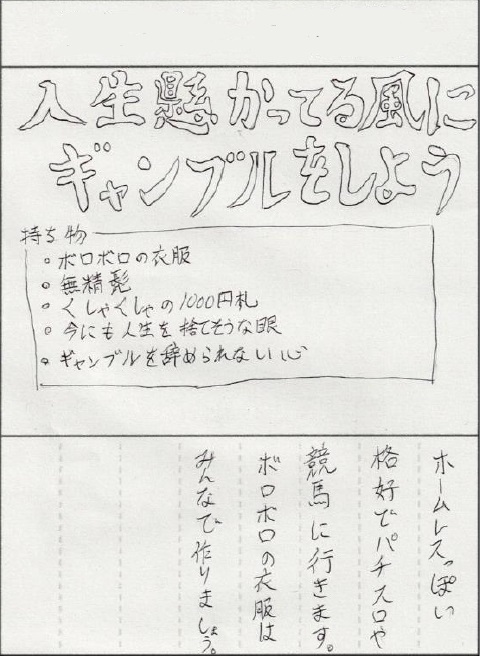 人生懸かってる風に
ギャンブルをしよう
持ち物
・ボロボロの衣服
・無精髭
・くしゃくしゃの1000円札
・今にも人生を捨てそうな眼
・ギャンブルを辞められない心
ホームレスっぽい
格好でパチスロや
競馬に行きます。
ボロボロの衣服は
みんなで作りましょう。